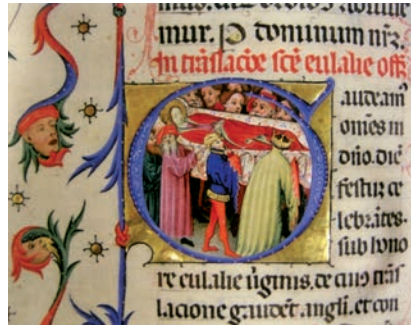 mur. P dominum nr̄z.
In trāslacōe scē eulalie offz
audeam
omēs in
dn̄o. diē
festuz ce
lebrātes.
sub hono
re eulalie ūginis. de cuiꝰ trās
lacione gaudēt angli. et con